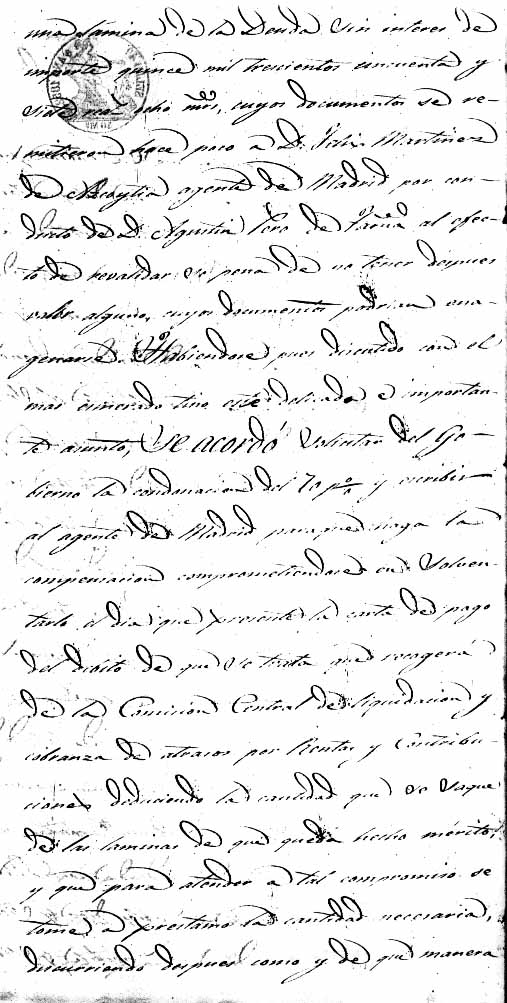 una lamina de la Deuda sin interes de
importe quince mil trescientos cincuenta y
siete rs ocho mrs, cuyos documentos se re-
mitieron hace poco a D. Felix Martinez
de agente de Madrid por con-
ducto de D. Agustin de al efec-
to de revalidar so pena de no tener despues
valor alguno, cuyos documentos podrian ena-
genarse. Habiendose pues discutido con el
mas esmerado tino este delicado e importan-
te asunto, Se acordó solicitar del Go-
bierno la condonacion del 70 p% y escribir
al agente de Madrid para que haga la
compensacion comprometiendose en solven-
tarle el dia que presente la carta de pago
del debito de que se trata que recogerá
de la Comision Central de liquidacion y
cobranza de atrasos por Rentas y Contribu-
ciones deduciendo la cantidad que se saque
de las laminas de que queda hecho mérito,
y que para atender a tal compromiso se
tome a prestamo la cantidad necesaria,
discurriendo despues como y de que manera